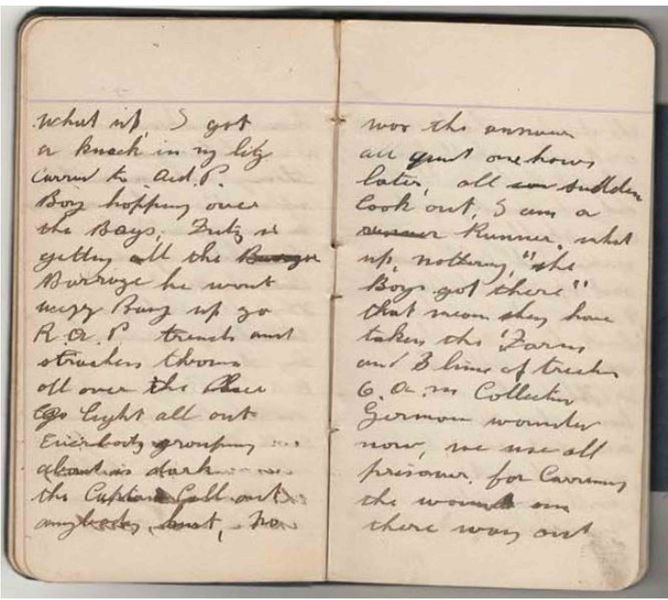 what up, I got
a knock in my
carried to Aid. P.
Boys hopping over
the Bags, Fritz is
getting all the
Barrage he want
Bang up go
R. A. P. trench and
stretchers thrown
all over the
light all out
Everbody grouping
about in dark
the Captain Call out
anybody hurt, No
was the answer
all quiet one hours
later, all sudden
Look out, I am a
Runner, what
up, nothing, "the
Boys got there"
that mean they have
taken the Farm
and 3 line of trenches
6. a. m Collecting
German wounded
now, we use all
prisoner for Carrying
the wounded on
there way out